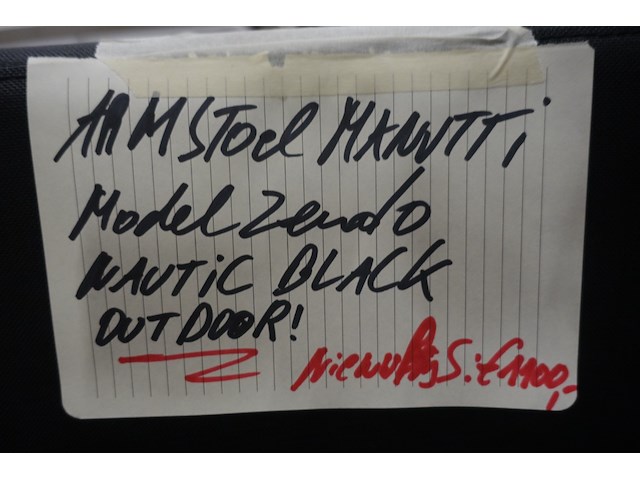 ARMSTOEL MANUTTI
Model Zendo
NAUTIC BLACK
OUTDOOR!
NieuwPrijs: €1100,-